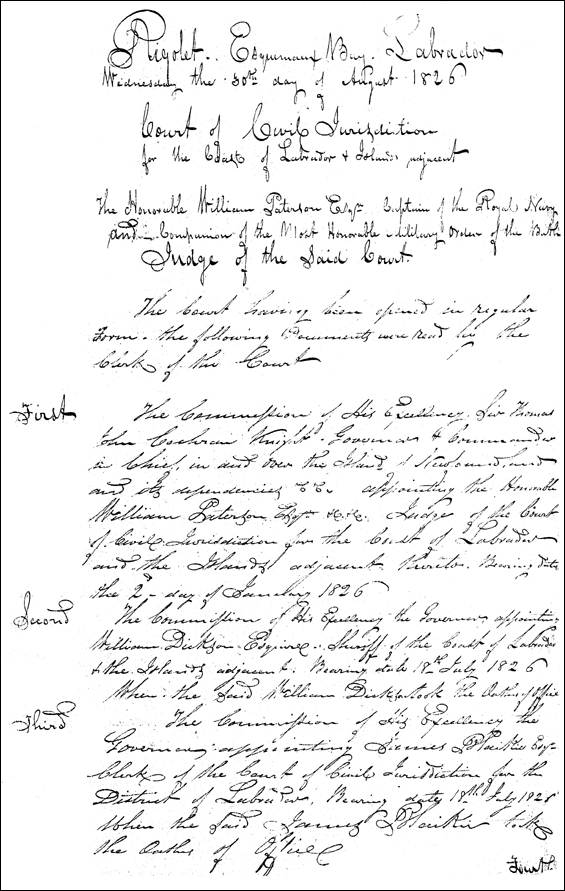 Rigolet. Esquimaux Bay. Labrador
Wednesday the 30th day of August 1826
Court of Civil Jurisdiction
for the Coast of Labrador & Islands adjacent
The Honorable William Paterson Esqr. Captain of the Royal Navy
and Companion of the Most Honorable Military Order of the Bath
Judge of the Said Court.
The Court having been opened in regular
Form. the following Documents were read by the
Clerk of the Court
First The Commission of His Excellency Sir Thomas
John Cochran Knight. Governor & Commander
in Chief in and over the Island of Newfoundland
and its dependencies &c. appointing the Honorable
William Paterson Esqr. &c. Judge of the Court
of Civil Jurisdiction for the Coast of Labrador
and the Islands adjacent thereto. Bearing date
the 2d day of January 1826
Second The Commission of His Excellency the Governor appointing
William Dickson Esquire. Sheriff of the Coast of Labrador
& the Islands adjacent. Bearing date 18th July 1826
When the Said William Dickson took the Oaths of Office
Third The Commission of His Excellency the
Governor appointing James Blaikie Esqr
Clerk of the Court of Civil Jurisdiction for the
District of Labrador. Bearing date 18th July 1826
When the Said James Blaikie took
the Oaths of Office
Fourth.